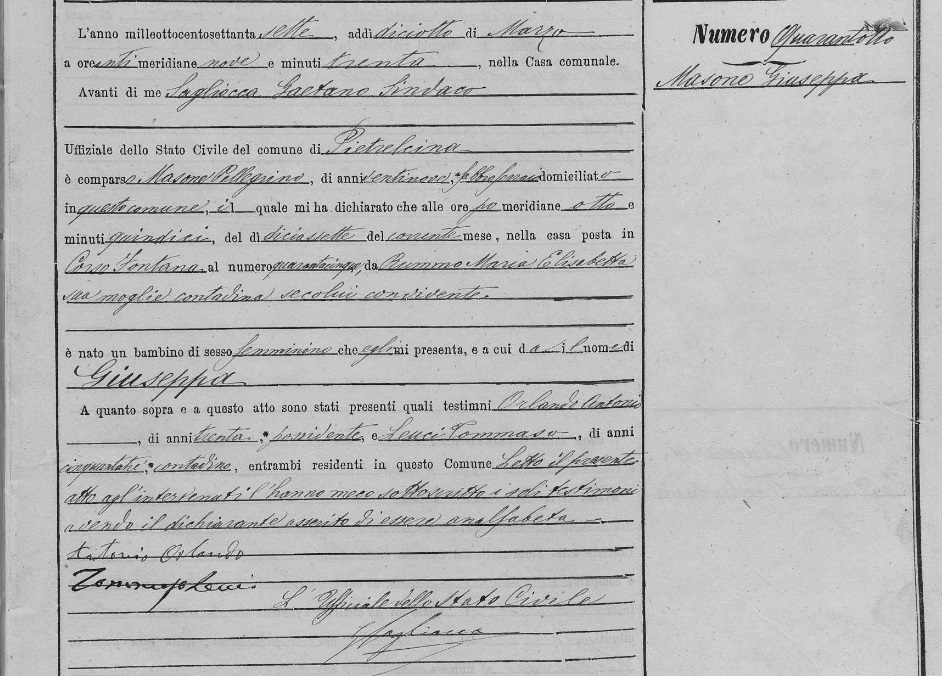 L'anno milleottocentosettanta sette, addì diciotto di Marzo
a ore anti meridiane nove e minuti trenta, nella Casa comunale.
Avanti di me Sagliocca Gaetano Sindaco
Uffiziale dello Stato Civile del comune di Pietrelcina
è comparso Masone Pellegrino, di anni ventinove, domiciliato
in questo comune, il quale mi ha dichiarato che alle ore po meridiane otto e
minuti quindici, del dì diciassette del corrente mese, nella casa posta in
Corso Fontana al numero quarantacinque, da Rummo Maria Elisabetta
sua moglie contadina secolui convivente.
è nato un bambino di sesso femminino che egli mi presenta, e a cui dà il nome di
Giuseppa
A quanto sopra e a questo atto sono stati presenti quali testimni Orlando Antonio
, di anni trenta, possidente, e Leuci Tommaso, di anni
cinquantatre, contadino, entrambi residenti in questo Comune Letto il presente
atto agl'intervenuti l'hanno meco sottoscritto i soli testimoni
avendo il dichiarante asserito di essere analfabeta
Antonio Orlando
Tommaso Leuci
L'Uffiziale dello Stato Civile
Sagliocca
Numero Quarantotto
Masone Giuseppa